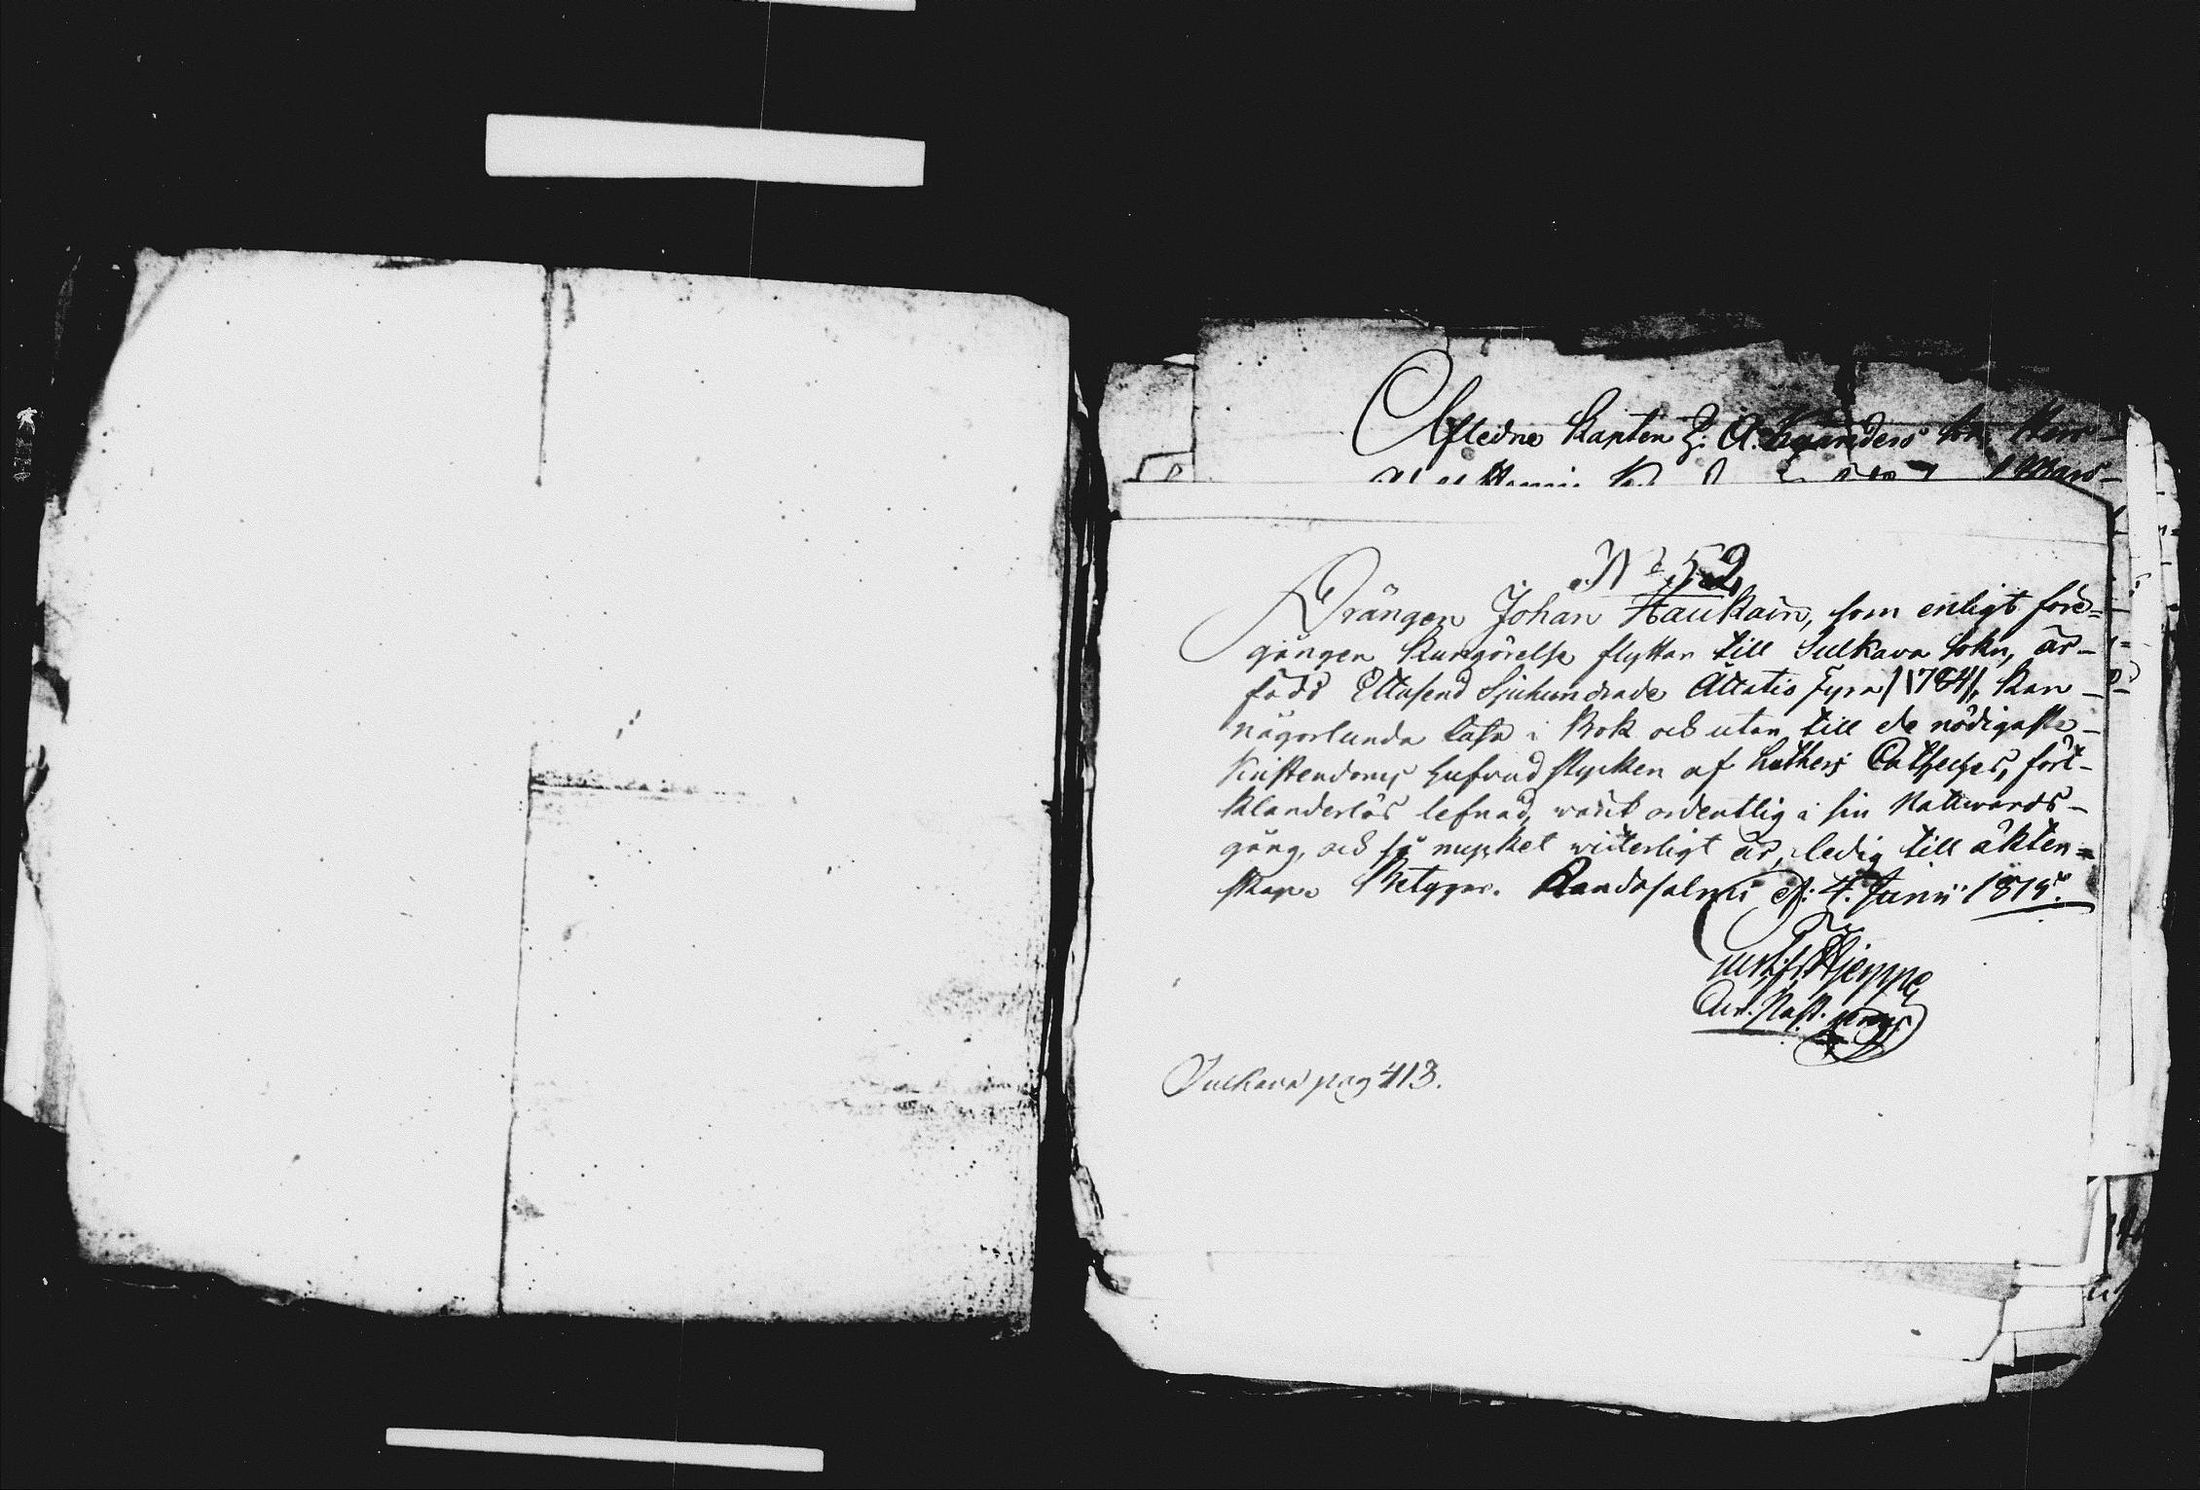 Afledne Kapten Z: A.
N:o 52,
Drängen Johan Haukain, som enligt före=
gången Kungörelse flyttar till Sulkava Sokn, är
född Ettusend Sjuhundrade Åttatio Fyra /1784/, kan
någorlunda läsa i Bok och utan till de nödigaste
Kristendoms hufvudstycken af Luthers Catheches, fört
klanderlös lefnad, varit ordentlig i sin Nattvards-
gång, och så mycket witterligt är, ledig till äkten=
skap. Betygar. Randasalmi d: 4. Junii 1819.
Gust: Hjerppe
Past.
Sulkava pag 413.